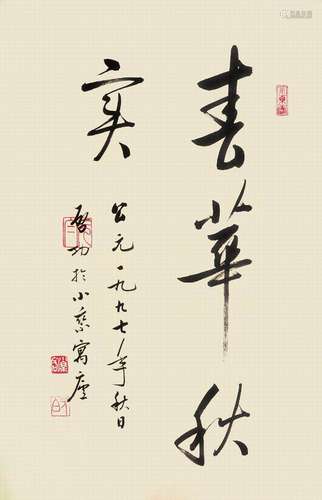 春華秋
实
公元一九九七年秋日
啟功於小[乘]寓廬